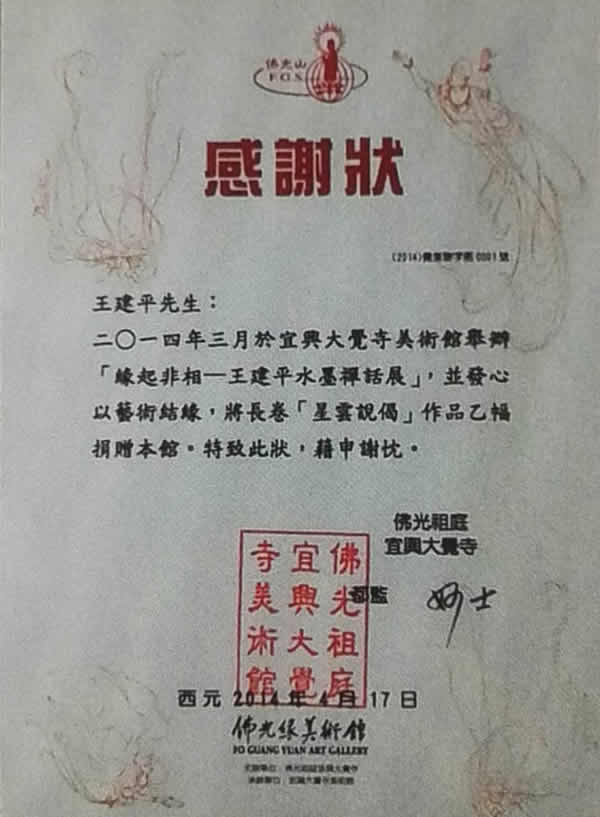 佛光山
F.G.S.
感謝狀
王建平先生：
二〇一四年三月於宜興大覺寺美術館舉辦
「緣起非相—王建平水墨禪話展」，並發心
以藝術結緣，將長卷「星雲說偈」作品乙幅
捐贈本館。特致此狀，藉申謝忱。
佛光祖庭
宜興大覺寺
都監 妙士
佛光祖庭
宜興大覺
寺美術館
西元 2014 年 4 月 17 日
佛光緣美術館
FO GUANG YUAN ART GALLERY